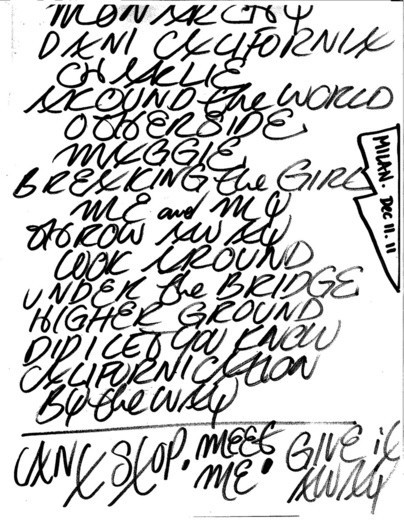 MONARCHY
DANI CALIFORNIA
CHARLIE
AROUND the WORLD
OTHERSIDE
MAGGIE
BREAKING the GIRL
ME and MY
THROW AWAY
LOOK AROUND
UNDER the BRIDGE
HIGHER GROUND
DID I LET YOU KNOW
CALIFORNICATION
By the WAY
CAN'T STOP. MEET ME. GIVE it AWAY
MILAN. Dec 11. 11